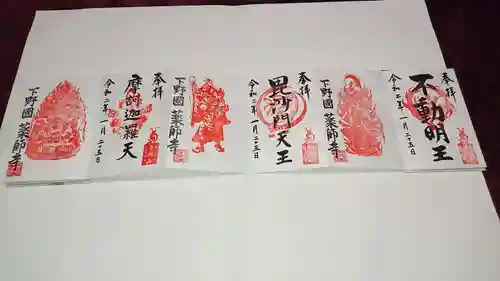 奉拝
不動明王
令和二年一月二五日
下野國 薬師寺
奉拝
毘沙門天王
令和二年一月二五日
下野國 薬師寺
奉拝
摩訶迦羅天
令和二年一月二五日
下野國 薬師寺